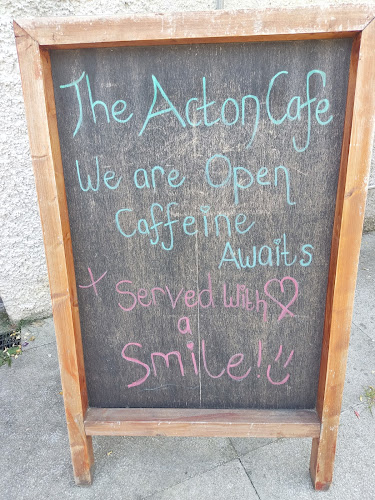 The Acton Cafe
We are Open
Caffeine
Awaits
+ Served With ♡
a
Smile! :)